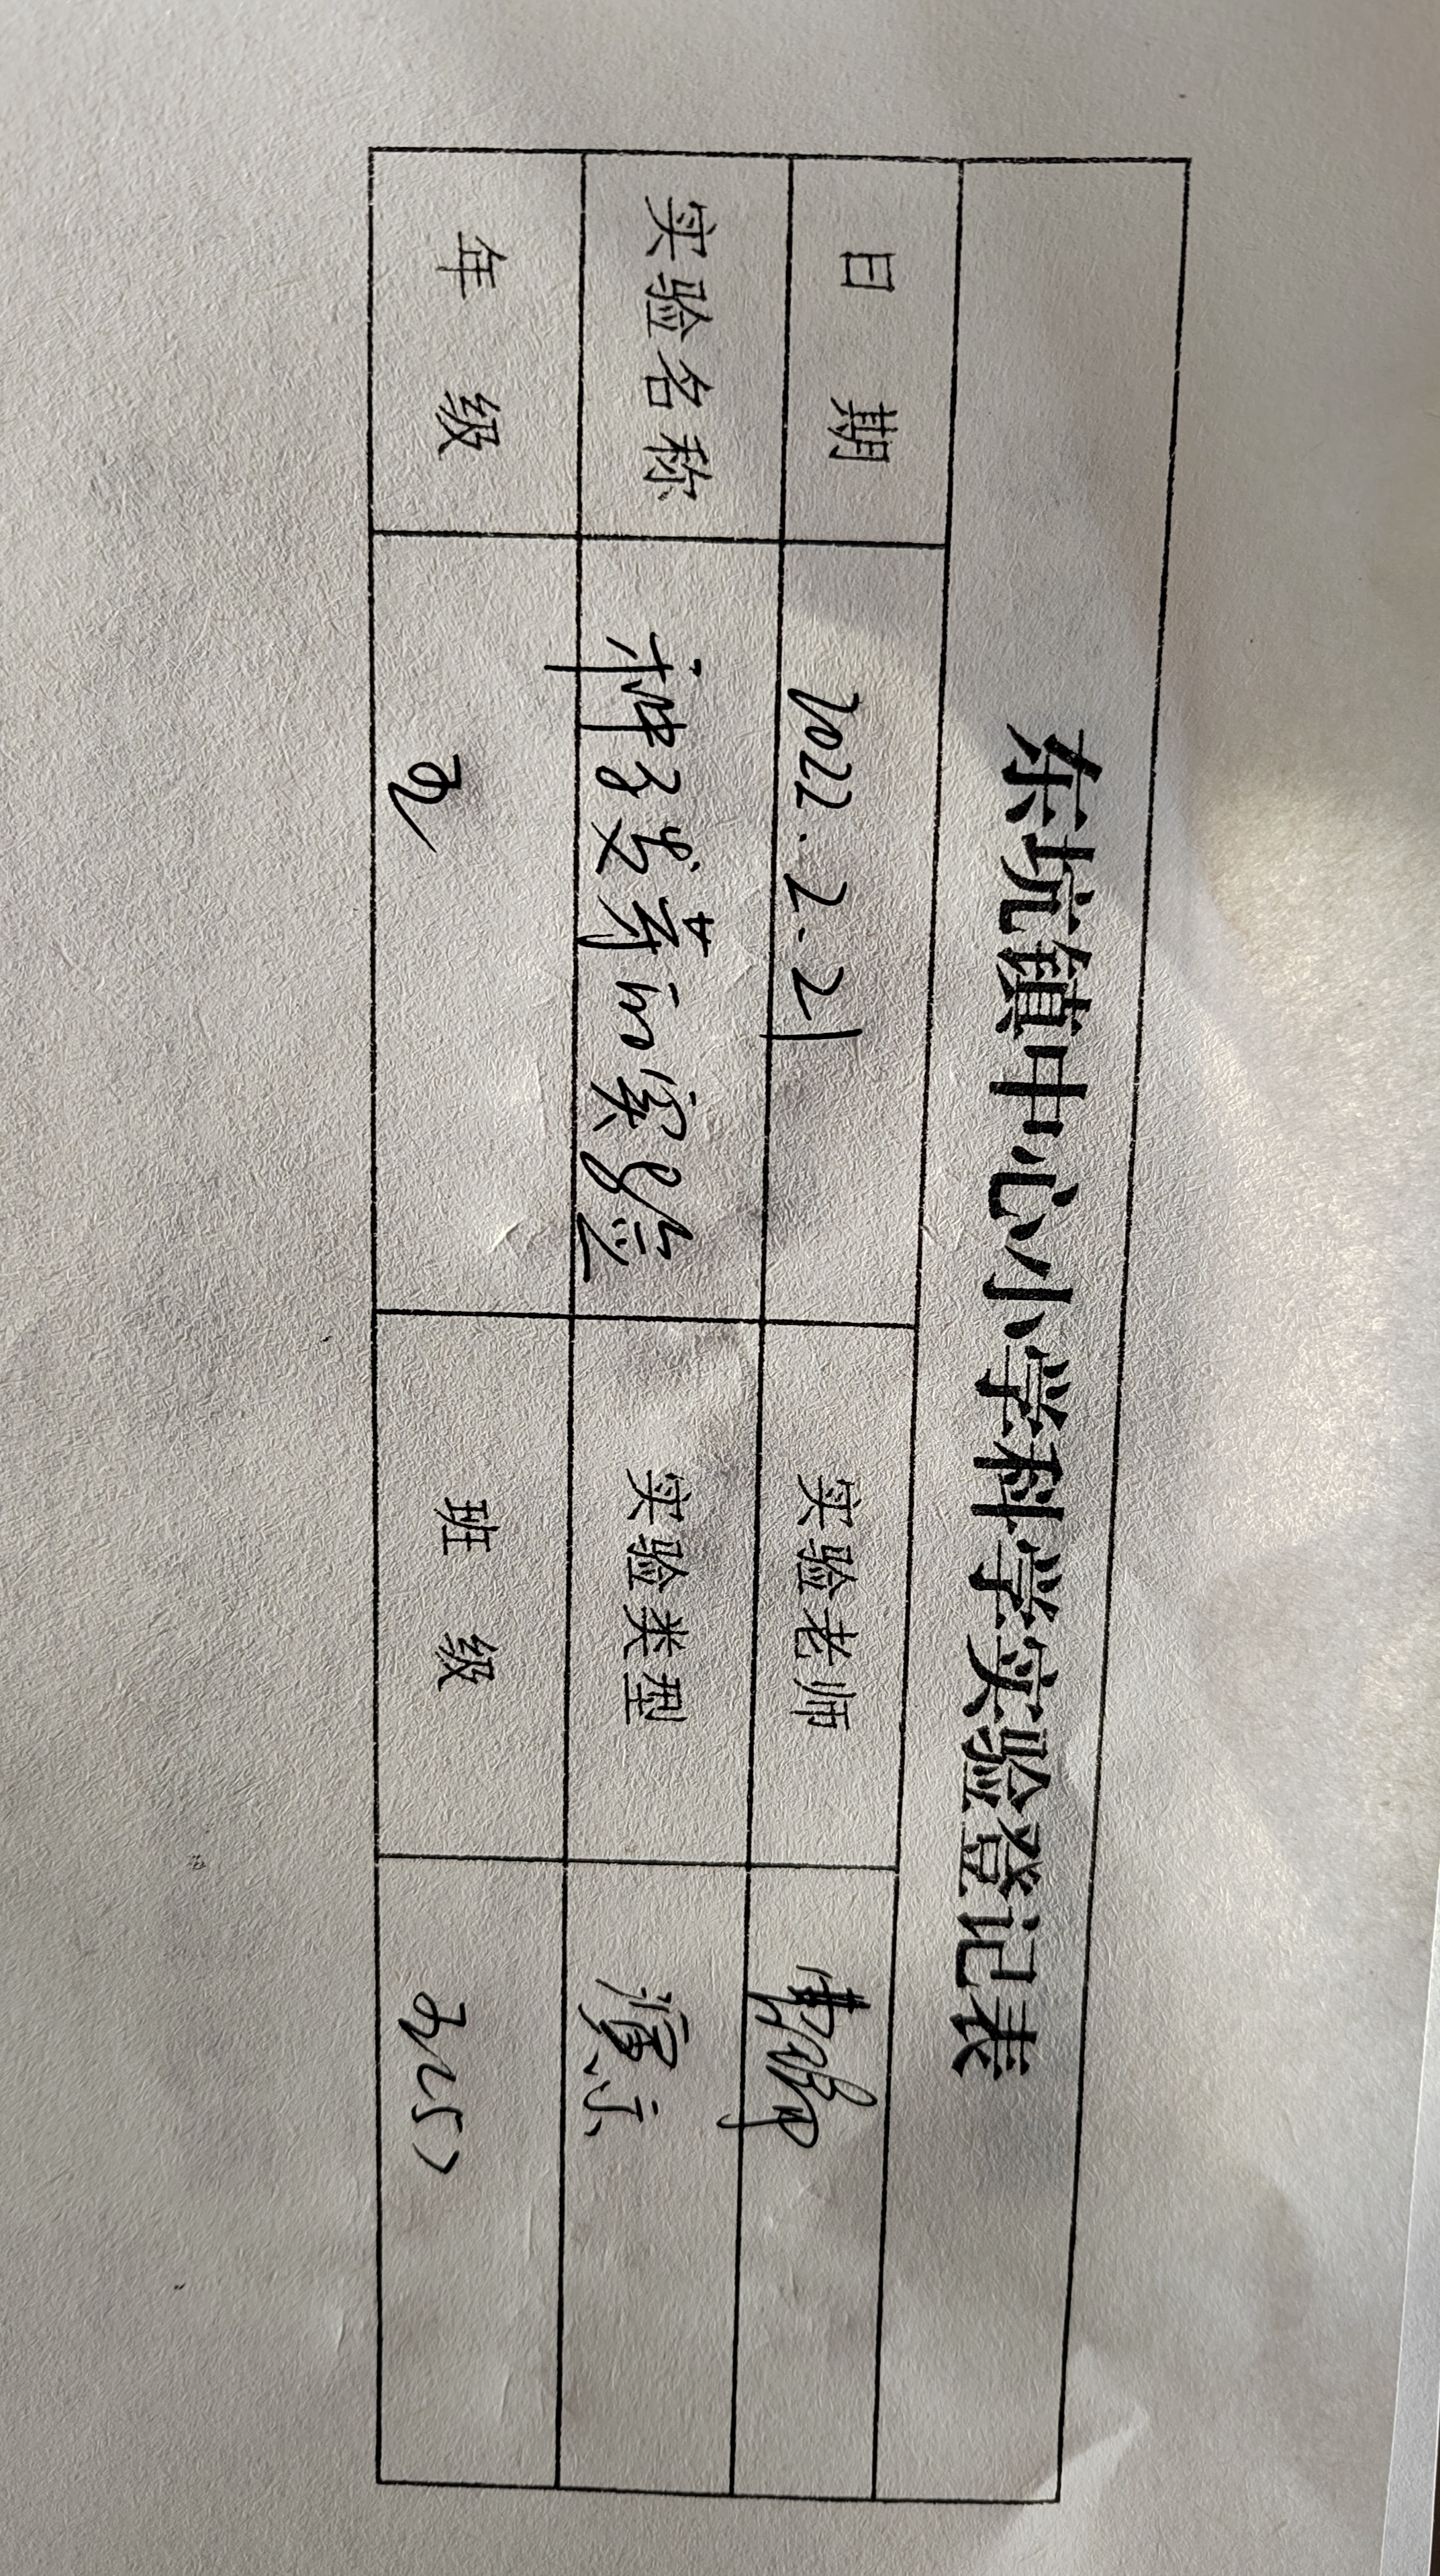 东坑镇中心小学科学实验登记表
日 期 2022.2.21 实验老师
实验名称 种子发芽的实验 实验类型 演示
年 级 五 班 级 五(5)